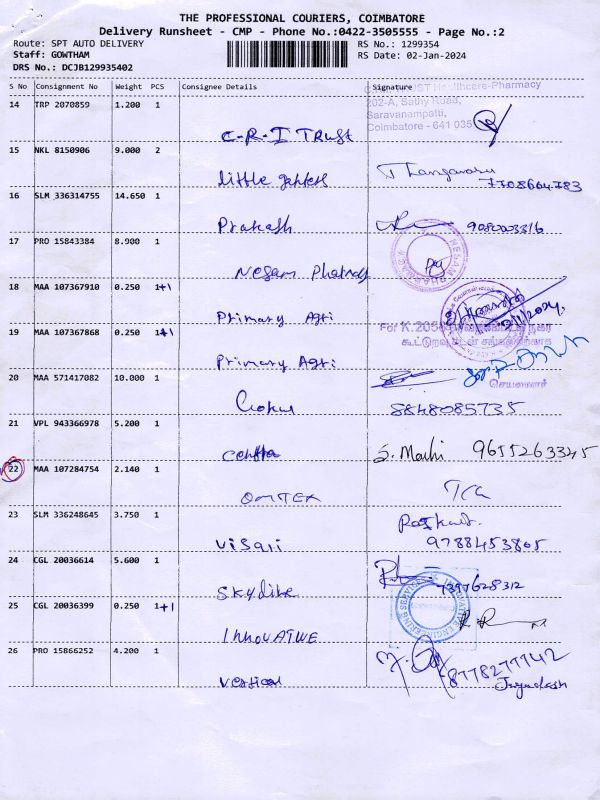 THE PROFESSIONAL COURIERS, COIMBATORE
Delivery Runsheet - CMP - Phone No.:0422-3505555 - Page No.:2
Route: SPT AUTO DELIVERY RS No.: 1299354
Staff: GOWTHAM RS Date: 02-Jan-2024
DRS No.: DCJB129935402
S No Consignment No Weight PCS Consignee Details Signature
Healthcere-Pharmacy
14 TRP 2070859 1.200 1 202-A, Sathy Road,
Saravanampatti,
Coimbatore - 641 035
C.R.I TRUST
15 NKL 8150906 9.000 2
little Thangavasu
7708664783
16 SLM 336314755 14.650 1
Prakash
17 PRO 15843384 8.900 1
NESAM PHARMACY
Nesam
18 MAA 107367910 0.250 1+1
Primary Agri
19 MAA 107367868 0.250 1+1 For K.2058
கூட்டுறவு கடன் சங்கத்திற்காக
Primary Agri
செயலாளர்
20 MAA 571417082 10.000 1
Gokul 8848085735
21 VPL 943366978 5.200 1
S. Mathi 9655263345
22 MAA 107284754 2.140 1
OMTEX
23 SLM 336248645 3.750 1
Visari 9788453805
24 CGL 20036614 5.600 1
7397628312
Skydike
25 CGL 20036399 0.250 1+1 INNOVATIVE ENGINEERING SERVICES
InnovATIVE
26 PRO 15866252 4.200 1
8778277742
Vertical Jayadash